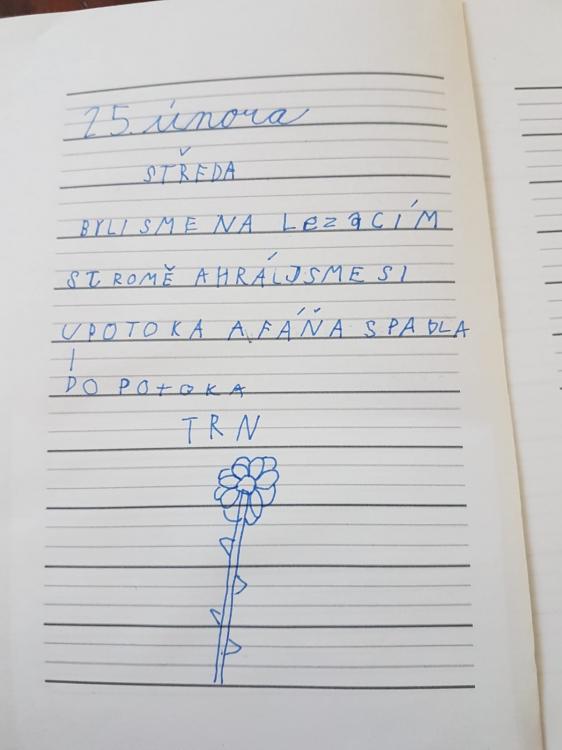 25. února
STŘEDA
BYLI SME NA LezacÍM
STROMĚ A HRÁLJSME SI
U POTOKA A FÁŇA SPADLA
I
DO POTOKA
TRN